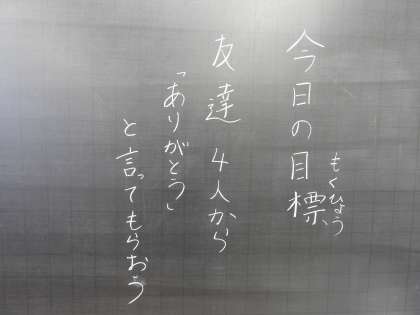 今日の目標
もくひょう
友達 4人から
「ありがとう」
と言ってもらおう